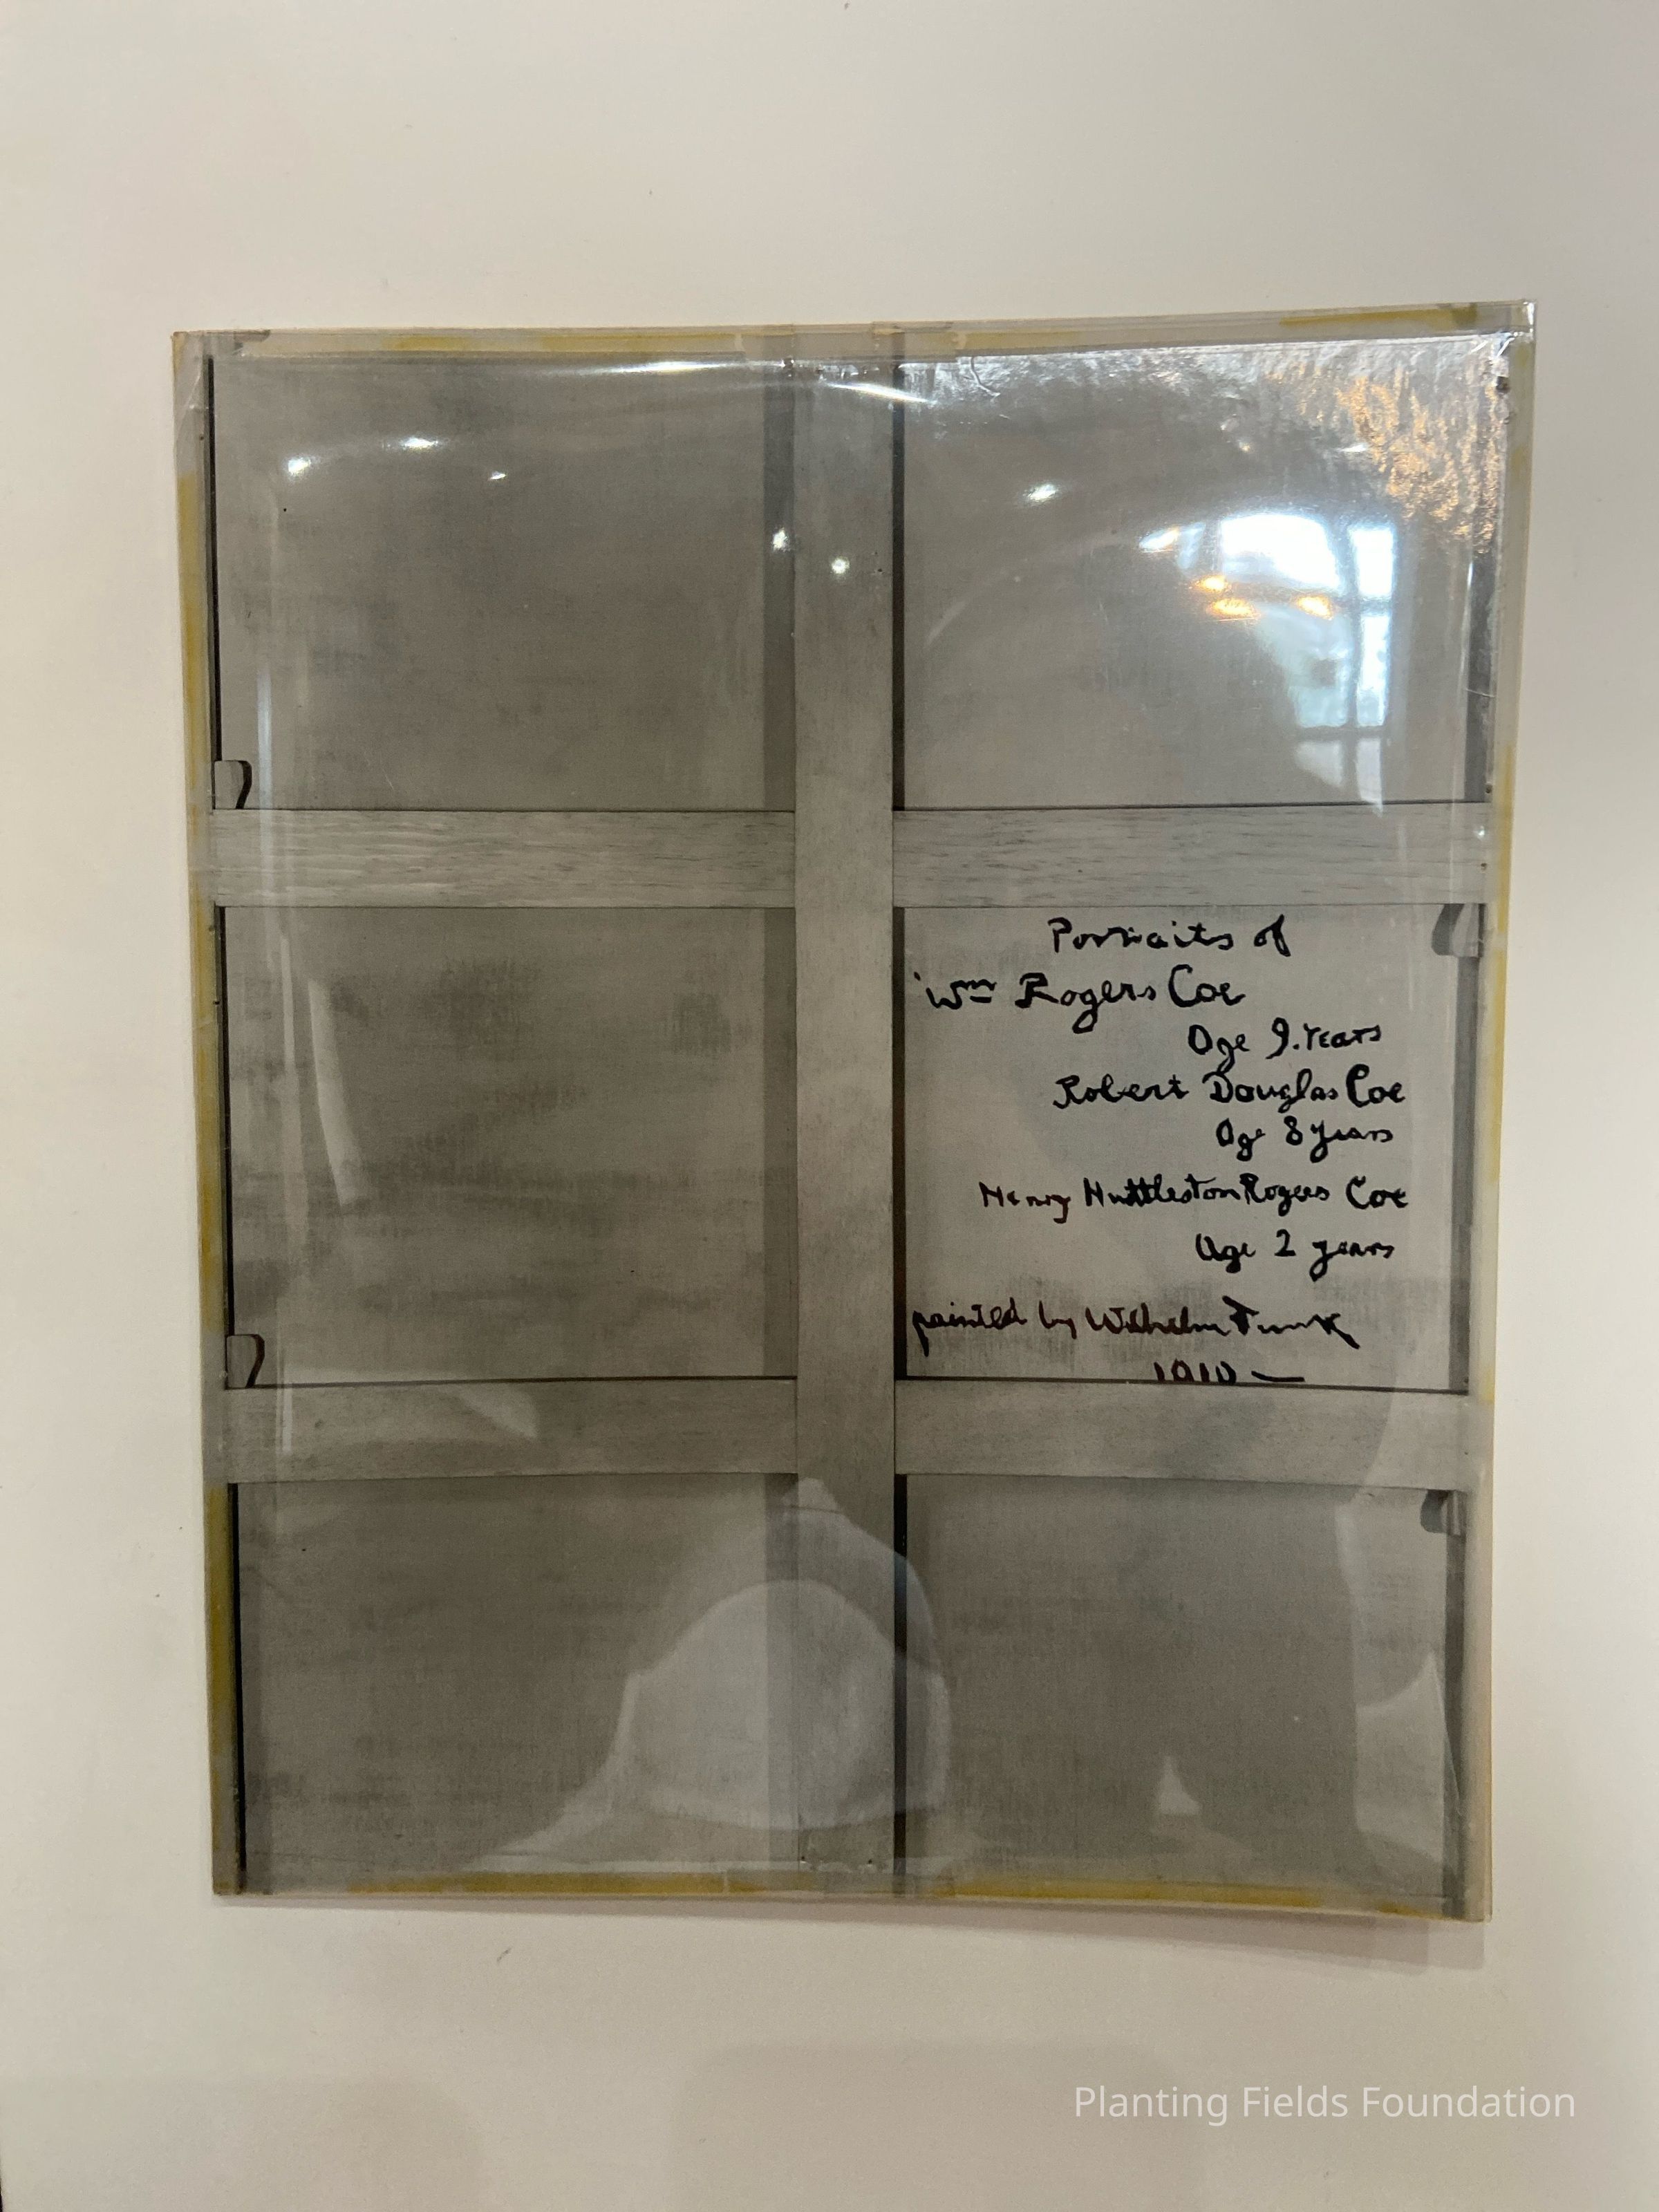 Portraits of
Wm Rogers Coe
Age 9. Years
Robert Douglas Coe
Age 8 years
Henry Huttleston Rogers Coe
Age 2 years
painted by Wilhelm Funk
1910 —
Planting Fields Foundation